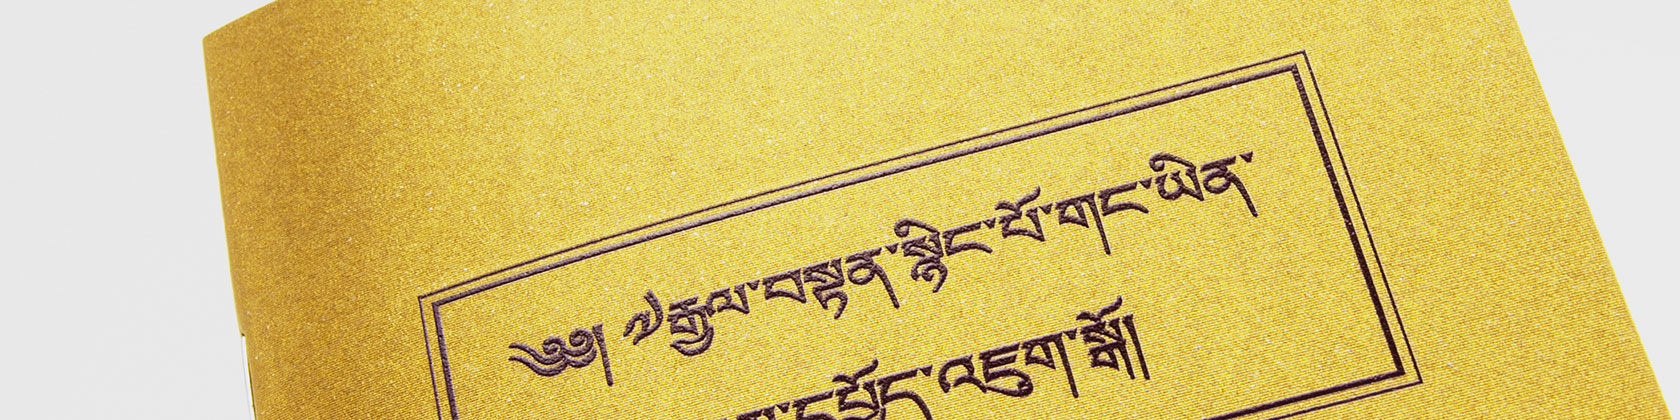 ༄༅། ༸རྒྱལ་བསྟན་སྙིང་པོ་གང་ཡིན་
དཔྱོད་འཇུག་སྒོ།